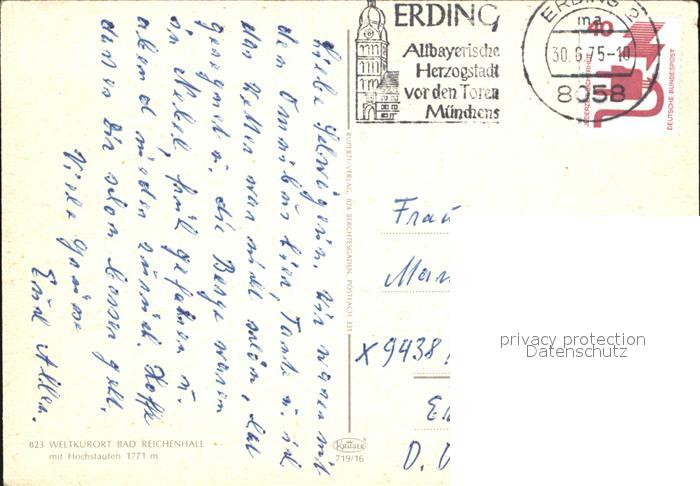 ERDING
Altbayerische
Herzogstadt
vor den Toren
Münchens
ERDING 2
ma
30.6.75-10
8058
40
JEDERZEIT SICHERHEIT
DEUTSCHE BUNDESPOST
Liebe Schwägerin. Wir waren mit
dem Omnibus hier, Tante u. ich
das Wetter war nicht schön, hat
geregnet u. die Berge waren
in Nebel, früh gefahren u.
abend wieder zurück. Hoffe
daß es Dir schon besser geht.
Viele Grüße
Euch Allen.
RUPERTI-VERLAG, 824 BERCHTESGADEN, POSTFACH 331
Frau
X 9438
D.
privacy protection
Datenschutz
823 WELTKURORT BAD REICHENHALL
mit Hochstaufen 1771 m
KRÜGER
719/16